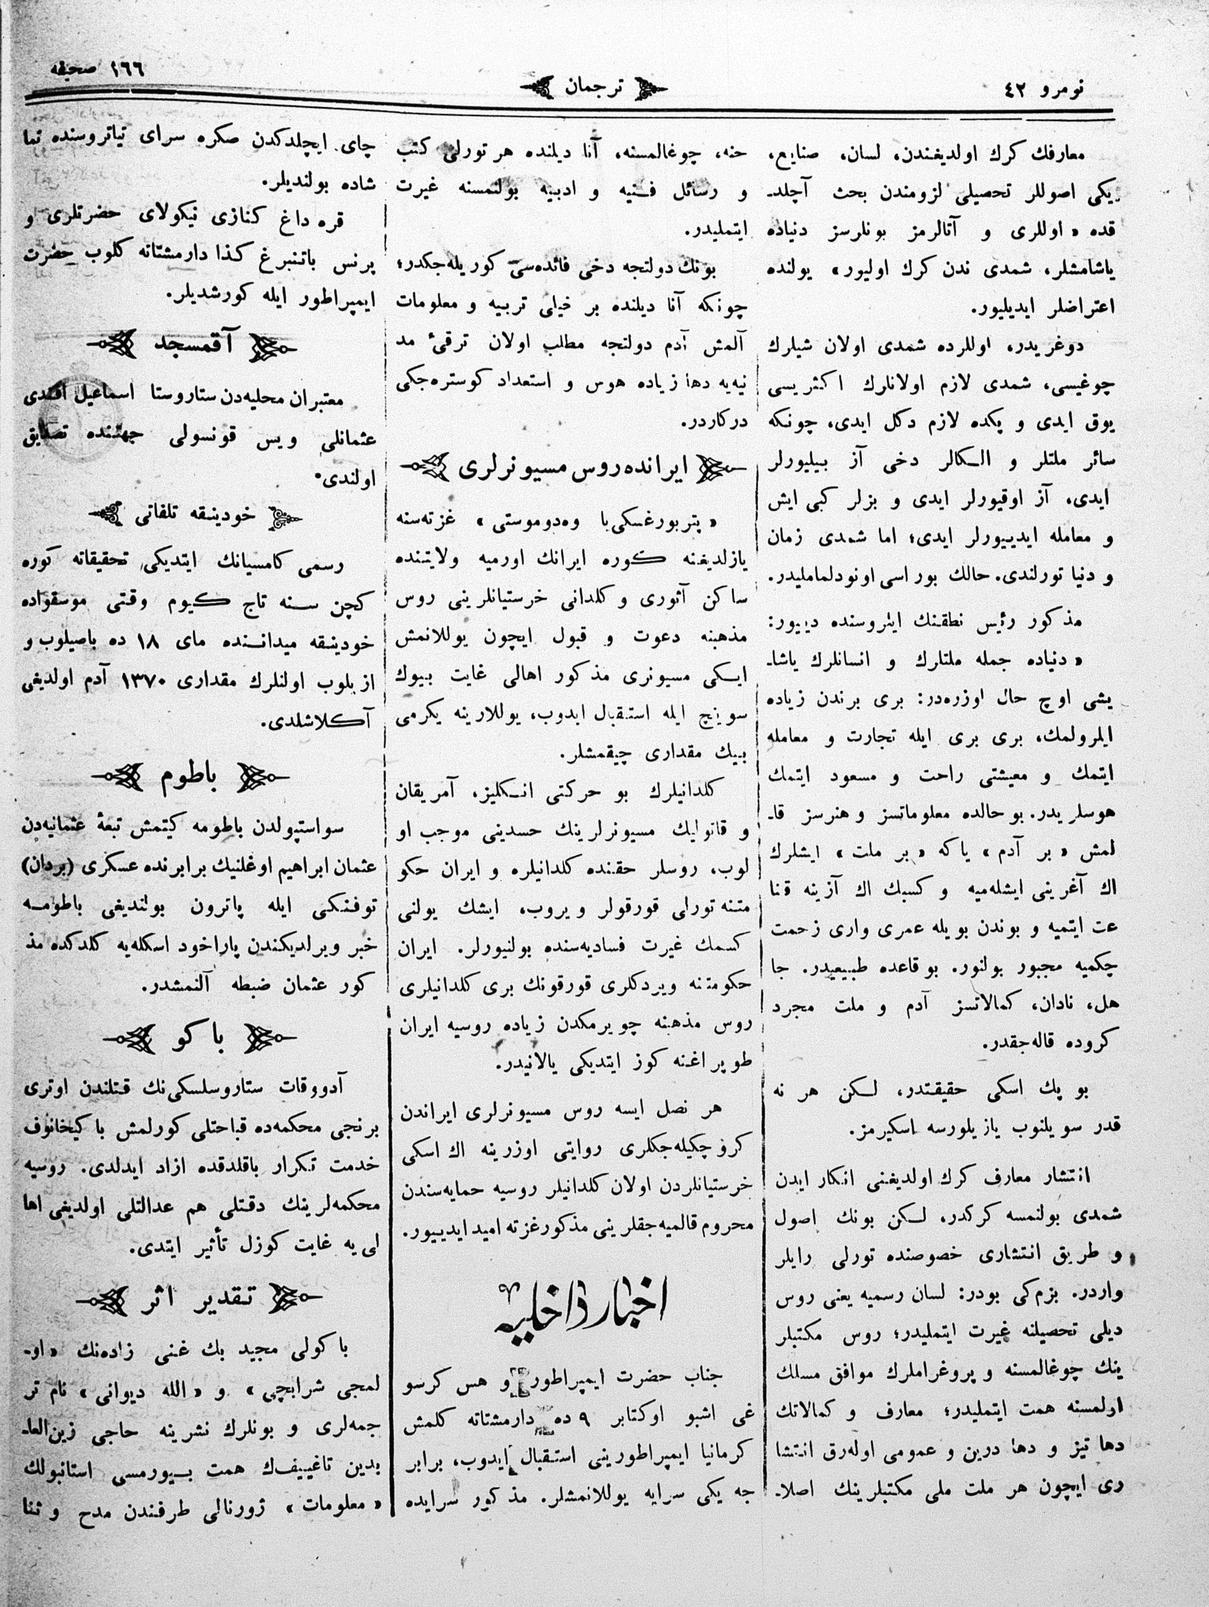 نومرو ٤٢
ترجمان
١٦٦ صحيفه
معارفك كرك اولديغندن، لسان، صنايع،
يكى اصوللر تحصيلى لزومندن بحث آچلد۔
قده « اوللرى و آتالرمز بونلرسز دنياده
ياشامشلر، شمدى ندن كرك اوليور» يولنده
اعتراضلر ايديليور.
دوغريدر، اوللرده شمدى اولان شيلرك
چوغيسى، شمدى لازم اولانلرك اكثريسى
يوق ايدى و پكده لازم دكل ايدى، چونكه
سائر ملتلر و الكالر دخى آز بيليورلر
ايدى، آز اوقيورلر ايدى و بزلر كبى ايش
و معامله ايدييورلر ايدى؛ اما شمدى زمان
و دنيا تورلندى. حالك بوراسى اونودلماملیدر.
مذكور رئيس نطقنك ايثروسنده دييور:
« دنياده جمله ملتلرك و انسانلرك ياشا۔
يشى اوچ حال اوزره‌در: برى برندن زياده
ايلرولمك، برى برى ايله تجارت و معامله
ايتمك و معيشتى راحت و مسعود ايتمك
هوسلريدر. بو حالده معلوماتسز و هنرسز قا۔
لمش « بر آدم» ياكه « بر ملت» ايشلرك
اك آغرينى ايشله‌ميه و كسبك اك آزينه قنا
عت ايتميه و بوندن بويله عمرى وارى زحمت
چكميه مجبور بولنور. بو قاعده طبيعيدر. جا
هل، نادان، كمالاتسز آدم و ملت مجرد
كروده قاله‌جقدر.
بو پك اسكى حقيقتدر، لكن هر نه
قدر سويلنوب يازيلورسه اسكيرمز.
انتشار معارف كرك اولديغنى انكار ايدن
شمدى بولنمسه كركدر، لكن بونك اصول
و طريق انتشارى خصوصنده تورلى رايلر
واردر. بزمكى بودر: لسان رسميه يعنى روس
ديلى تحصيلنه غيرت ايتمليدر؛ روس مكتبلر
ينك چوغالمسنه و پروغراملرك موافق مسلك
اولمسنه همت ايتمليدر؛ معارف و كمالاتك
دها تيز و دها درين و عمومى اوله‌رق انتشا
رى ايچون هر ملت ملى مكتبلرينك اصلا۔
حنه، چوغالمسنه، آنا ديلنده هر تورلى كتب
و رسائل فنيه و ادبيه بولنمسنه غيرت
ايتمليدر.
بونك دولتجه دخى فائده‌سى كوريله‌جكدر؛
چونكه آنا ديلنده بر خيلى تربيه و معلومات
آلمش آدم دولتجه مطلب اولان ترقئ مد
نيه‌يه دها زياده هوس و استعداد كوستره‌جكى
دركاردر.
ايرانده روس مسيونرلرى
« پتربورغسكى‌يا وه‌دوموستى» غزته‌سنه
يازلديغنه كوره ايرانك اورميه ولايتنده
ساكن آثورى و كلدانى خرستيانلرينى روس
مذهبنه دعوت و قبول ايچون يوللانمش
ايكى مسيونرى مذكور اهالى غايت بيوك
سوينچ ايله استقبال ايدوب، يوللارينه يكرمى
بيك مقدارى چيقمشلر.
كلدانيلرك بو حركتى انكليز، آمريقان
و قاتوليك مسيونرلرينك حسدينى موجب او
لوب، روسلر حقنده كلدانيلره و ايران حكو
متنه تورلى قورقولر ويروب، ايشك يولنى
كسمك غيرت فساديه‌سنده بولنيورلر. ايران
حكومتنه ويردكلرى قورقونك برى كلدانيلرى
روس مذهبنه چويرمكدن زياده روسيه ايران
طوپراغنه كوز ايتديكى يالانيدر.
هر نصل ايسه روس مسيونرلرى ايراندن
كرو چكيله‌جكلرى روايتى اوزرينه اك اسكى
خرستيانلردن اولان كلدانيلر روسيه حمايه‌سندن
محروم قالميه‌جقلرينى مذكور غزته اميد ايدييور.
اخبار داخليه
جناب حضرت ايمپراطور و هس كرسو
غى اشبو اوكتابر ٩ ده دارمشتاته كلمش
كرمانيا ايمپراطورينى استقبال ايدوب، برابر
جه يكى سرايه يوللانمشلر. مذكور سرايده
چاى ايچلدكدن صكره سراى تياتروسنده تما
شاده بولنديلر.
قره داغ كنازى نيكولاى حضرتلرى و
پرنس باتنبرغ كذا دارمشتاته كلوب حضرت
ايمپراطور ايله كورشديلر.
آقمسجد
معتبران محليه‌دن ستاروستا اسماعيل افندى
عثمانلى ويس قونسولى جهتنده تصديق
اولندى.
خودينقه تلفاتى
رسمى كامسيانك ايتديكى تحقيقاته كوره
كچن سنه تاج كيوم وقتى موسقواده
خودينقه ميداننده ماى ١٨ ده باصيلوب و
ازيلوب اولنلرك مقدارى ١٣٧٠ آدم اولديغى
آكلاشلدى.
باطوم
سواستپولدن باطومه كيتمش تبعۀ عثمانيه‌دن
عثمان ابراهيم اوغلنيك برابرنده عسكرى (بردان)
توفنكى ايله پاترون بولنديغى باطومه
خبر ويرلديكندن پاراخود اسكله‌يه كلدكده مذ
كور عثمان ضبطه آلنمشدر.
باكو
آدووقات ستاروسلسكى‌نك قتلندن اوترى
برنجى محكمه‌ده قباحتلى كورلمش باكيخانوف
خدمت تكرار باقلدقده ازاد ايدلدى. روسيه
محكمه‌لرينك دقتلى هم عدالتلى اولديغى اها
لى‌يه غايت كوزل تأثير ايتدى.
تقدير اثر
باكولى مجيد بك غنى زاده‌نك « او۔
لمجى شرابچى» و « الله ديوانى» نام تر
جمه‌لرى و بونلرك نشرينه حاجى زين‌العا۔
بدين تاغييفك همت بيورمسى استانبولك
« معلومات» ژورنالى طرفندن مدح و ثنا